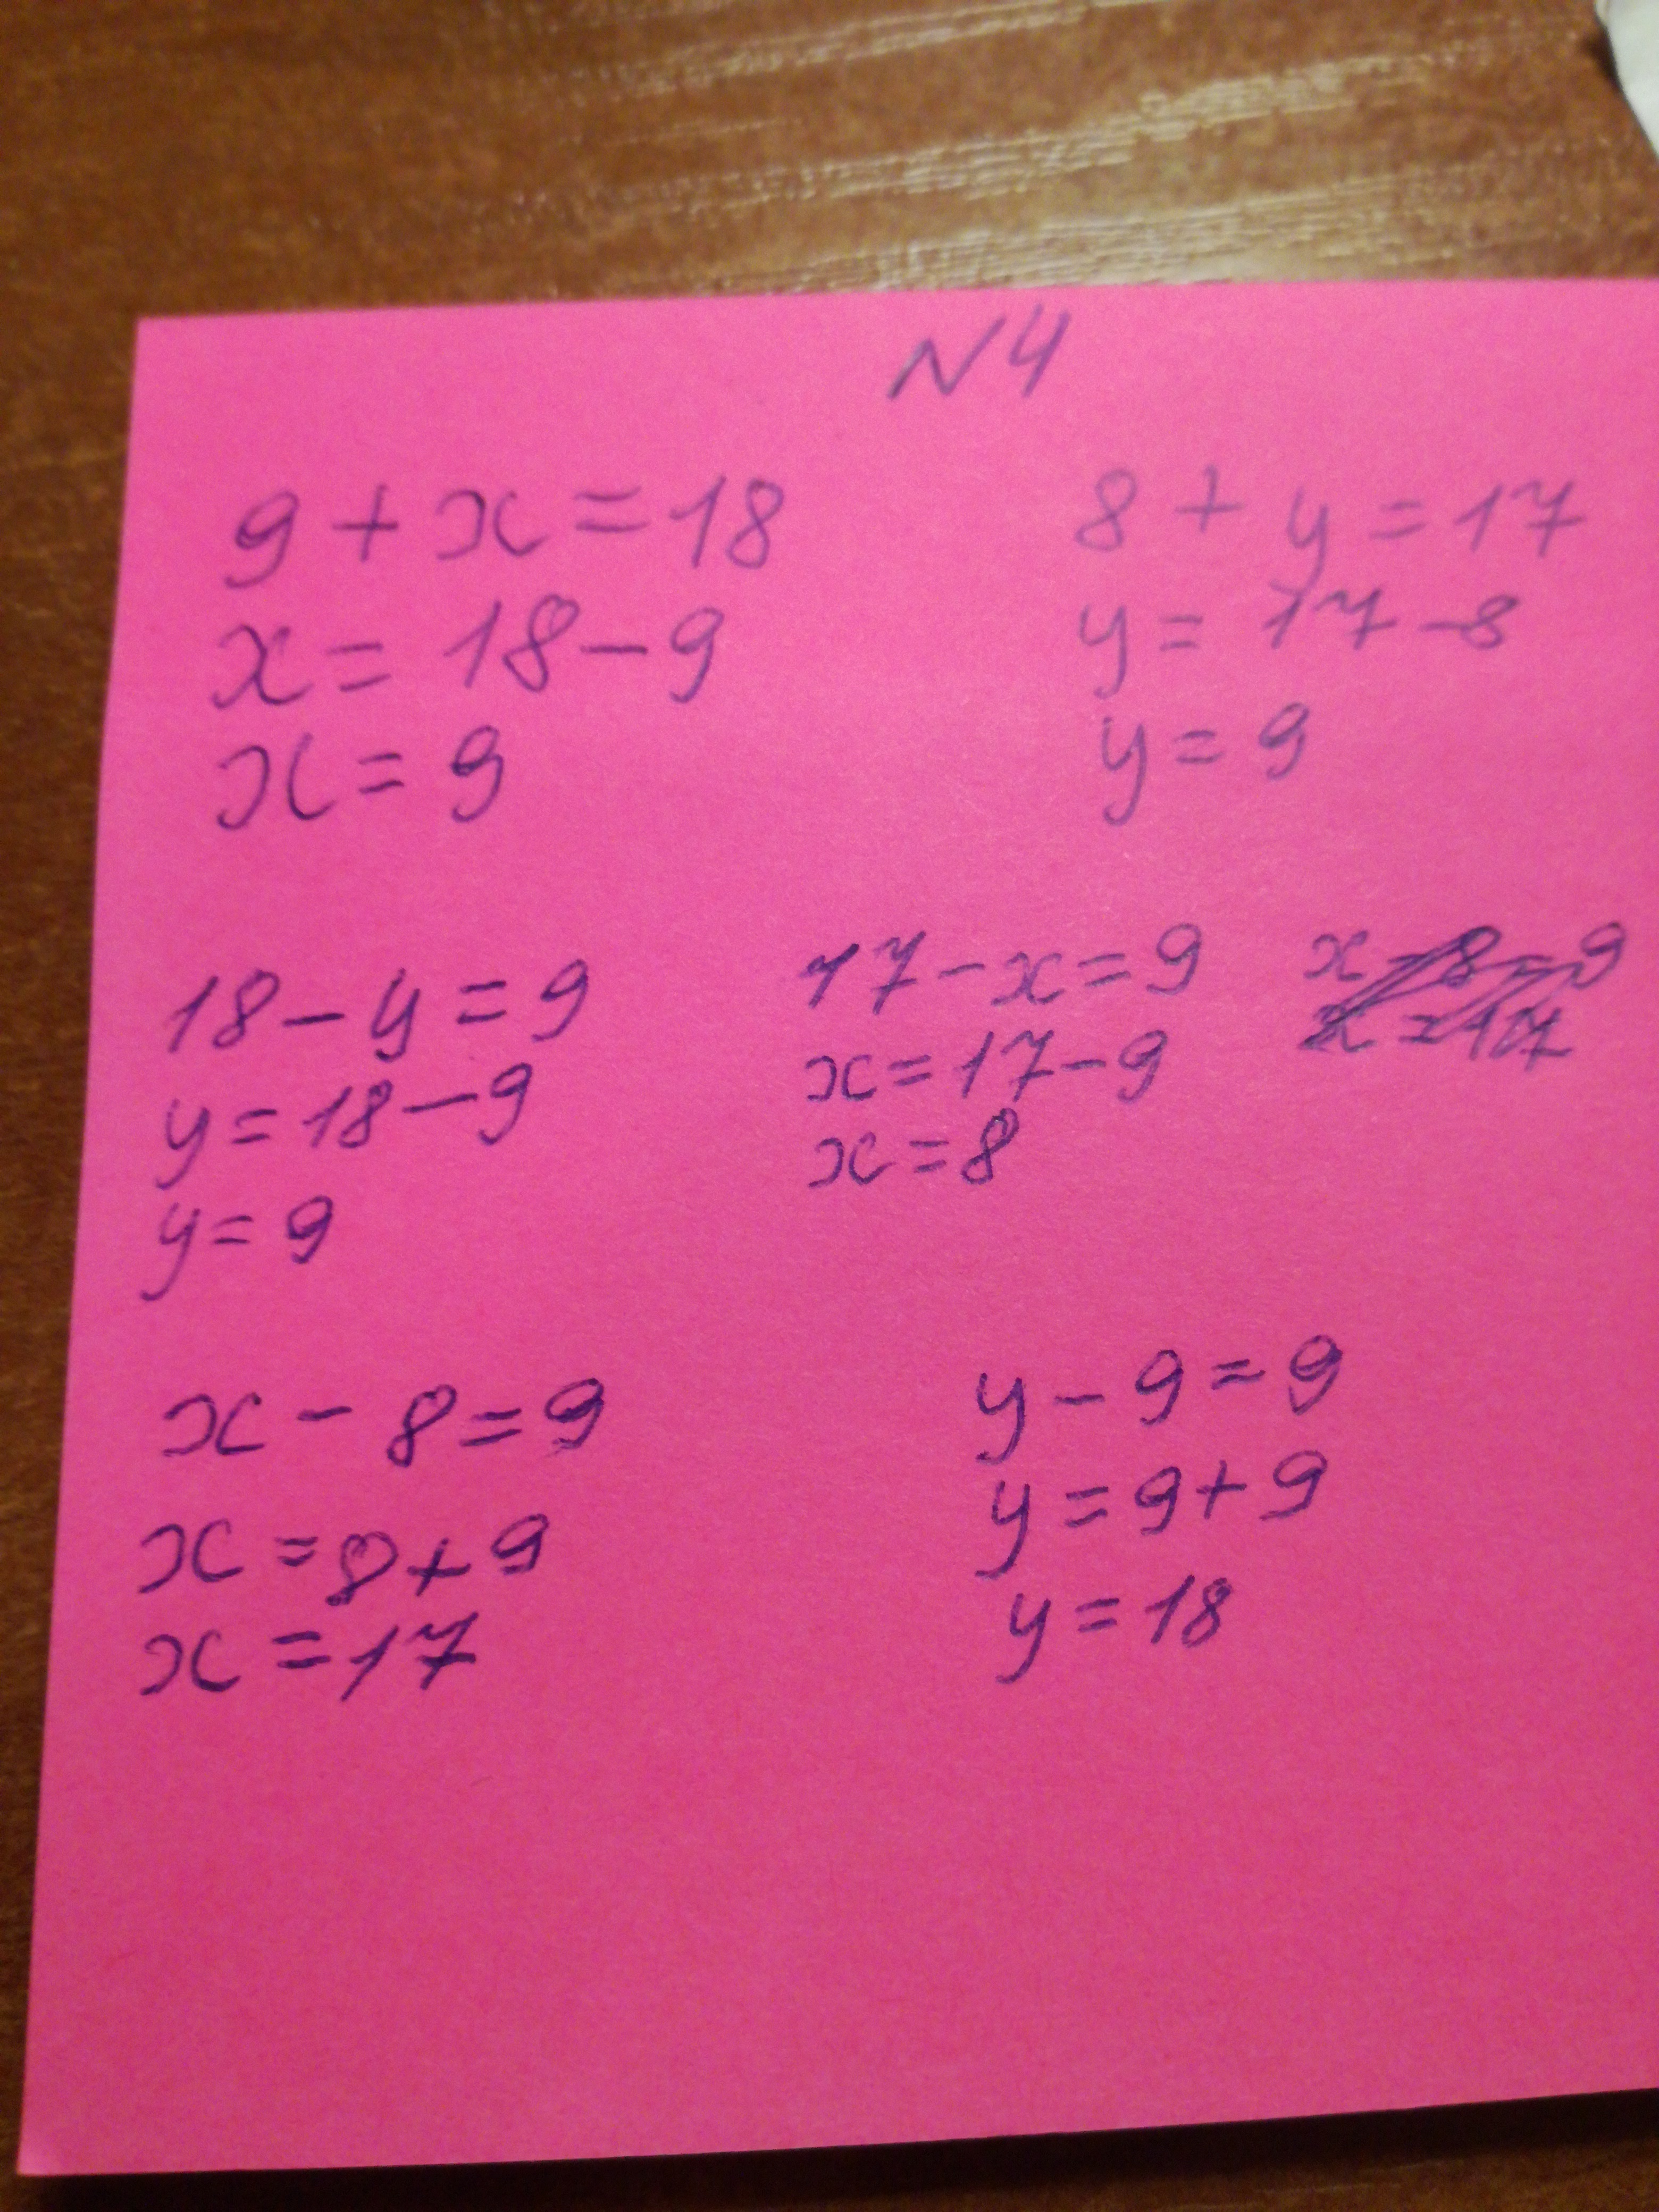 N4
9 + x = 18
x = 18 - 9
x = 9
8 + y = 17
y = 17 - 8
y = 9
18 - y = 9
y = 18 - 9
y = 9
17 - x = 9
x = 17 - 9
x = 8
x - 8 = 9
x = 17
x - 8 = 9
x = 8 + 9
x = 17
y - 9 = 9
y = 9 + 9
y = 18